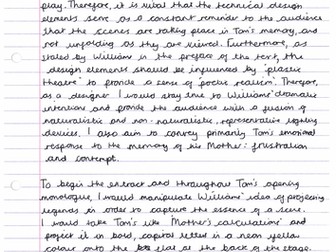 play. Therefore, it is vital that the technical design
elements serve as a constant reminder to the audience
that the scenes are taking place in Tom's memory, and
not unfolding as they are viewed. Furthermore, as
stated by Williams in the preface of the text, the
design elements should be influenced by 'plastic
theatre' to provide a sense of poetic realism. Therefore,
as a designer I would stay true to Williams' dramatic
intention and provide the audience with a fusion of
naturalistic and non-naturalistic, representative lighting
devices. I also aim to convey primarily Tom's emotional
response to the memory of his Mother: frustration
and contempt.
To begin the extract and throughout Tom's opening
monologue, I would manipulate Williams' idea of projecting
legends in order to capture the essence of a scene.
I would take Tom's line 'Mother's calculations' and
project it in bold, capital letters in a neon yellow
colour onto the flat at the back of the stage.